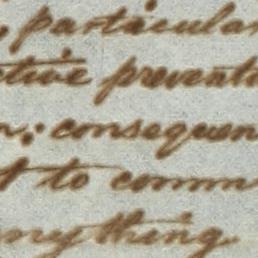 , particular
ctive preventa
n; consequen
t to comm
nything